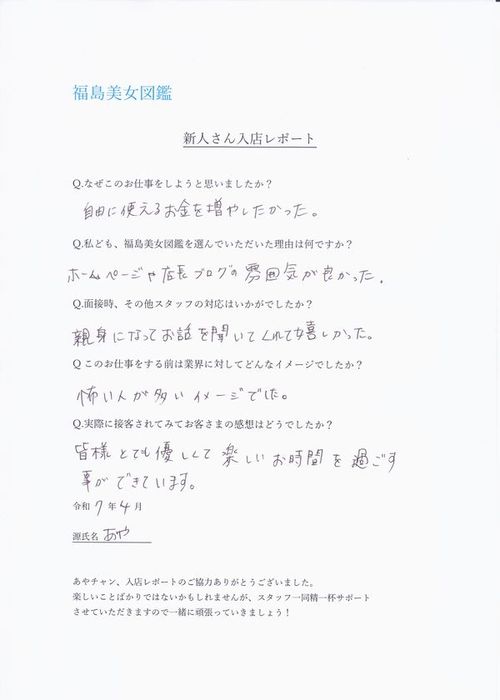 福島美女図鑑
新人さん入店レポート
Q.なぜこのお仕事をしようと思いましたか？
自由に使えるお金を増やしたかった。
Q.私ども、福島美女図鑑を選んでいただいた理由は何ですか？
ホームページや店長ブログの雰囲気が良かった。
Q.面接時、その他スタッフの対応はいかがでしたか？
親身になってお話を聞いてくれて嬉しかった。
Qこのお仕事をする前は業界に対してどんなイメージでしたか？
怖い人が多いイメージでした。
Q.実際に接客されてみてお客さまの感想はどうでしたか？
皆様とても優しくて楽しいお時間を過ごす
事ができています。
令和7年4月
源氏名 あや
あやチャン、入店レポートのご協力ありがとうございました。
楽しいことばかりではないかもしれませんが、スタッフ一同精一杯サポート
させていただきますので一緒に頑張っていきましょう！